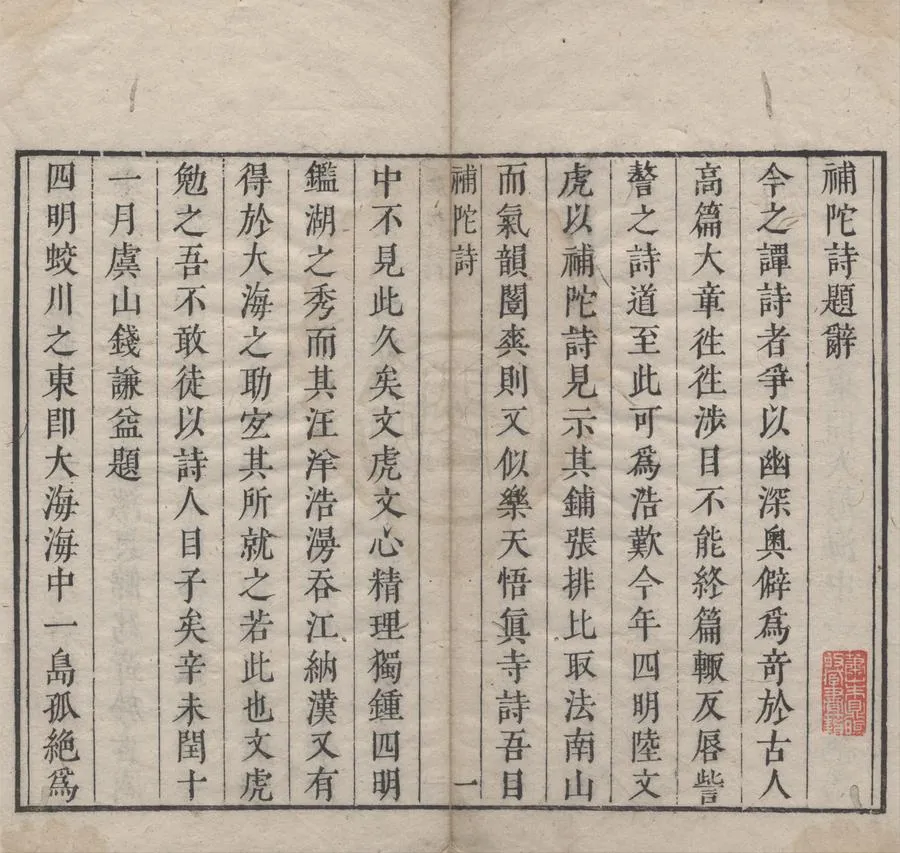 補陀詩題辭
今之譚詩者爭以幽深奥僻爲竒於古人
高篇大章徃徃涉目不能終篇輙反唇訾
謷之詩道至此可爲浩歎今年四明陸文
虎以補陀詩見示其鋪張排比取法南山
而氣韻闔奕則又似樂天悟眞寺詩吾目
補陀詩
一
中不見此久矣文虎文心精理獨鍾四明
鑑湖之秀而其汪洋浩漫吞江納漢又有
得於大海之助宐其所就之若此也文虎
勉之吾不敢徒以詩人目子矣辛未閏十
一月虞山錢謙益題
四明蛟川之東卽大海海中一島孤絶爲